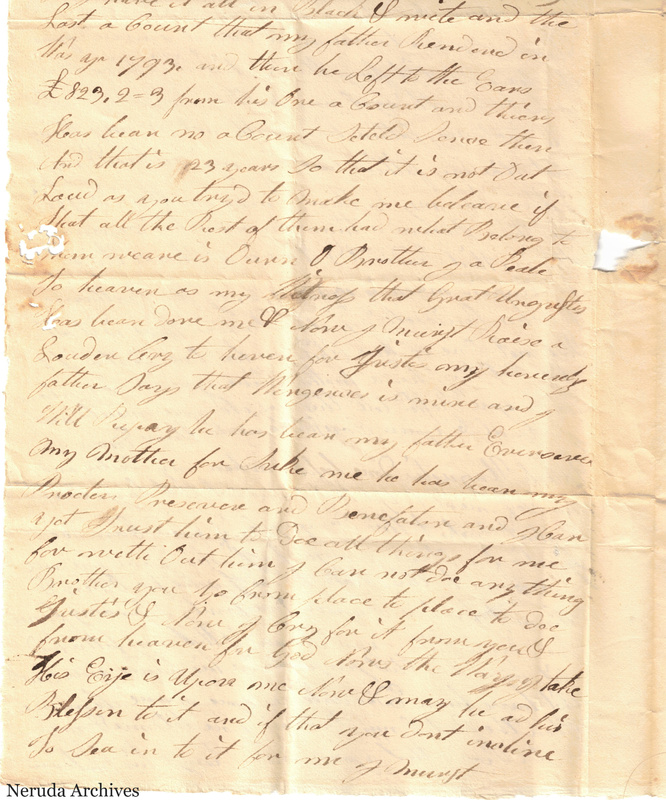 have it all in Black & write and the
Last a Count that my father Rendend in
Was yr 1793. and then he Left to the Ears
£823,,2=3 from his One a Count and thiers
Has bean no a Count Seteld Sence then
And that is 23 years So that it is not Out
Laud as you tryd to make me beleave if
that all the Rest of them had what Belong to
them weare is Ourn O Brother I a Peale
To heaven as my Witness that Grat Ungustes
Has bean dove me & Now I Muirst Raise a
Louder Cry to heven for Justis my hevenly
father Says that Vingences is mine and I
Will Repay he has bean my father Ever
My Mother for Suke me he has bean my
Procter Preserver and Benefator and I Can
yet Trust him to Doe all things for me
for with Out him I Can not doe any thing
Brother you go from place to place to doe
Justis & Now I Cry for it from you &
from heaven for God Nows the Way I take
His Eye is Upon me Now & may he ad his
Blesson to it and if that you Dont incline
To Sea in to it for me I Muirst
Neruda Archives